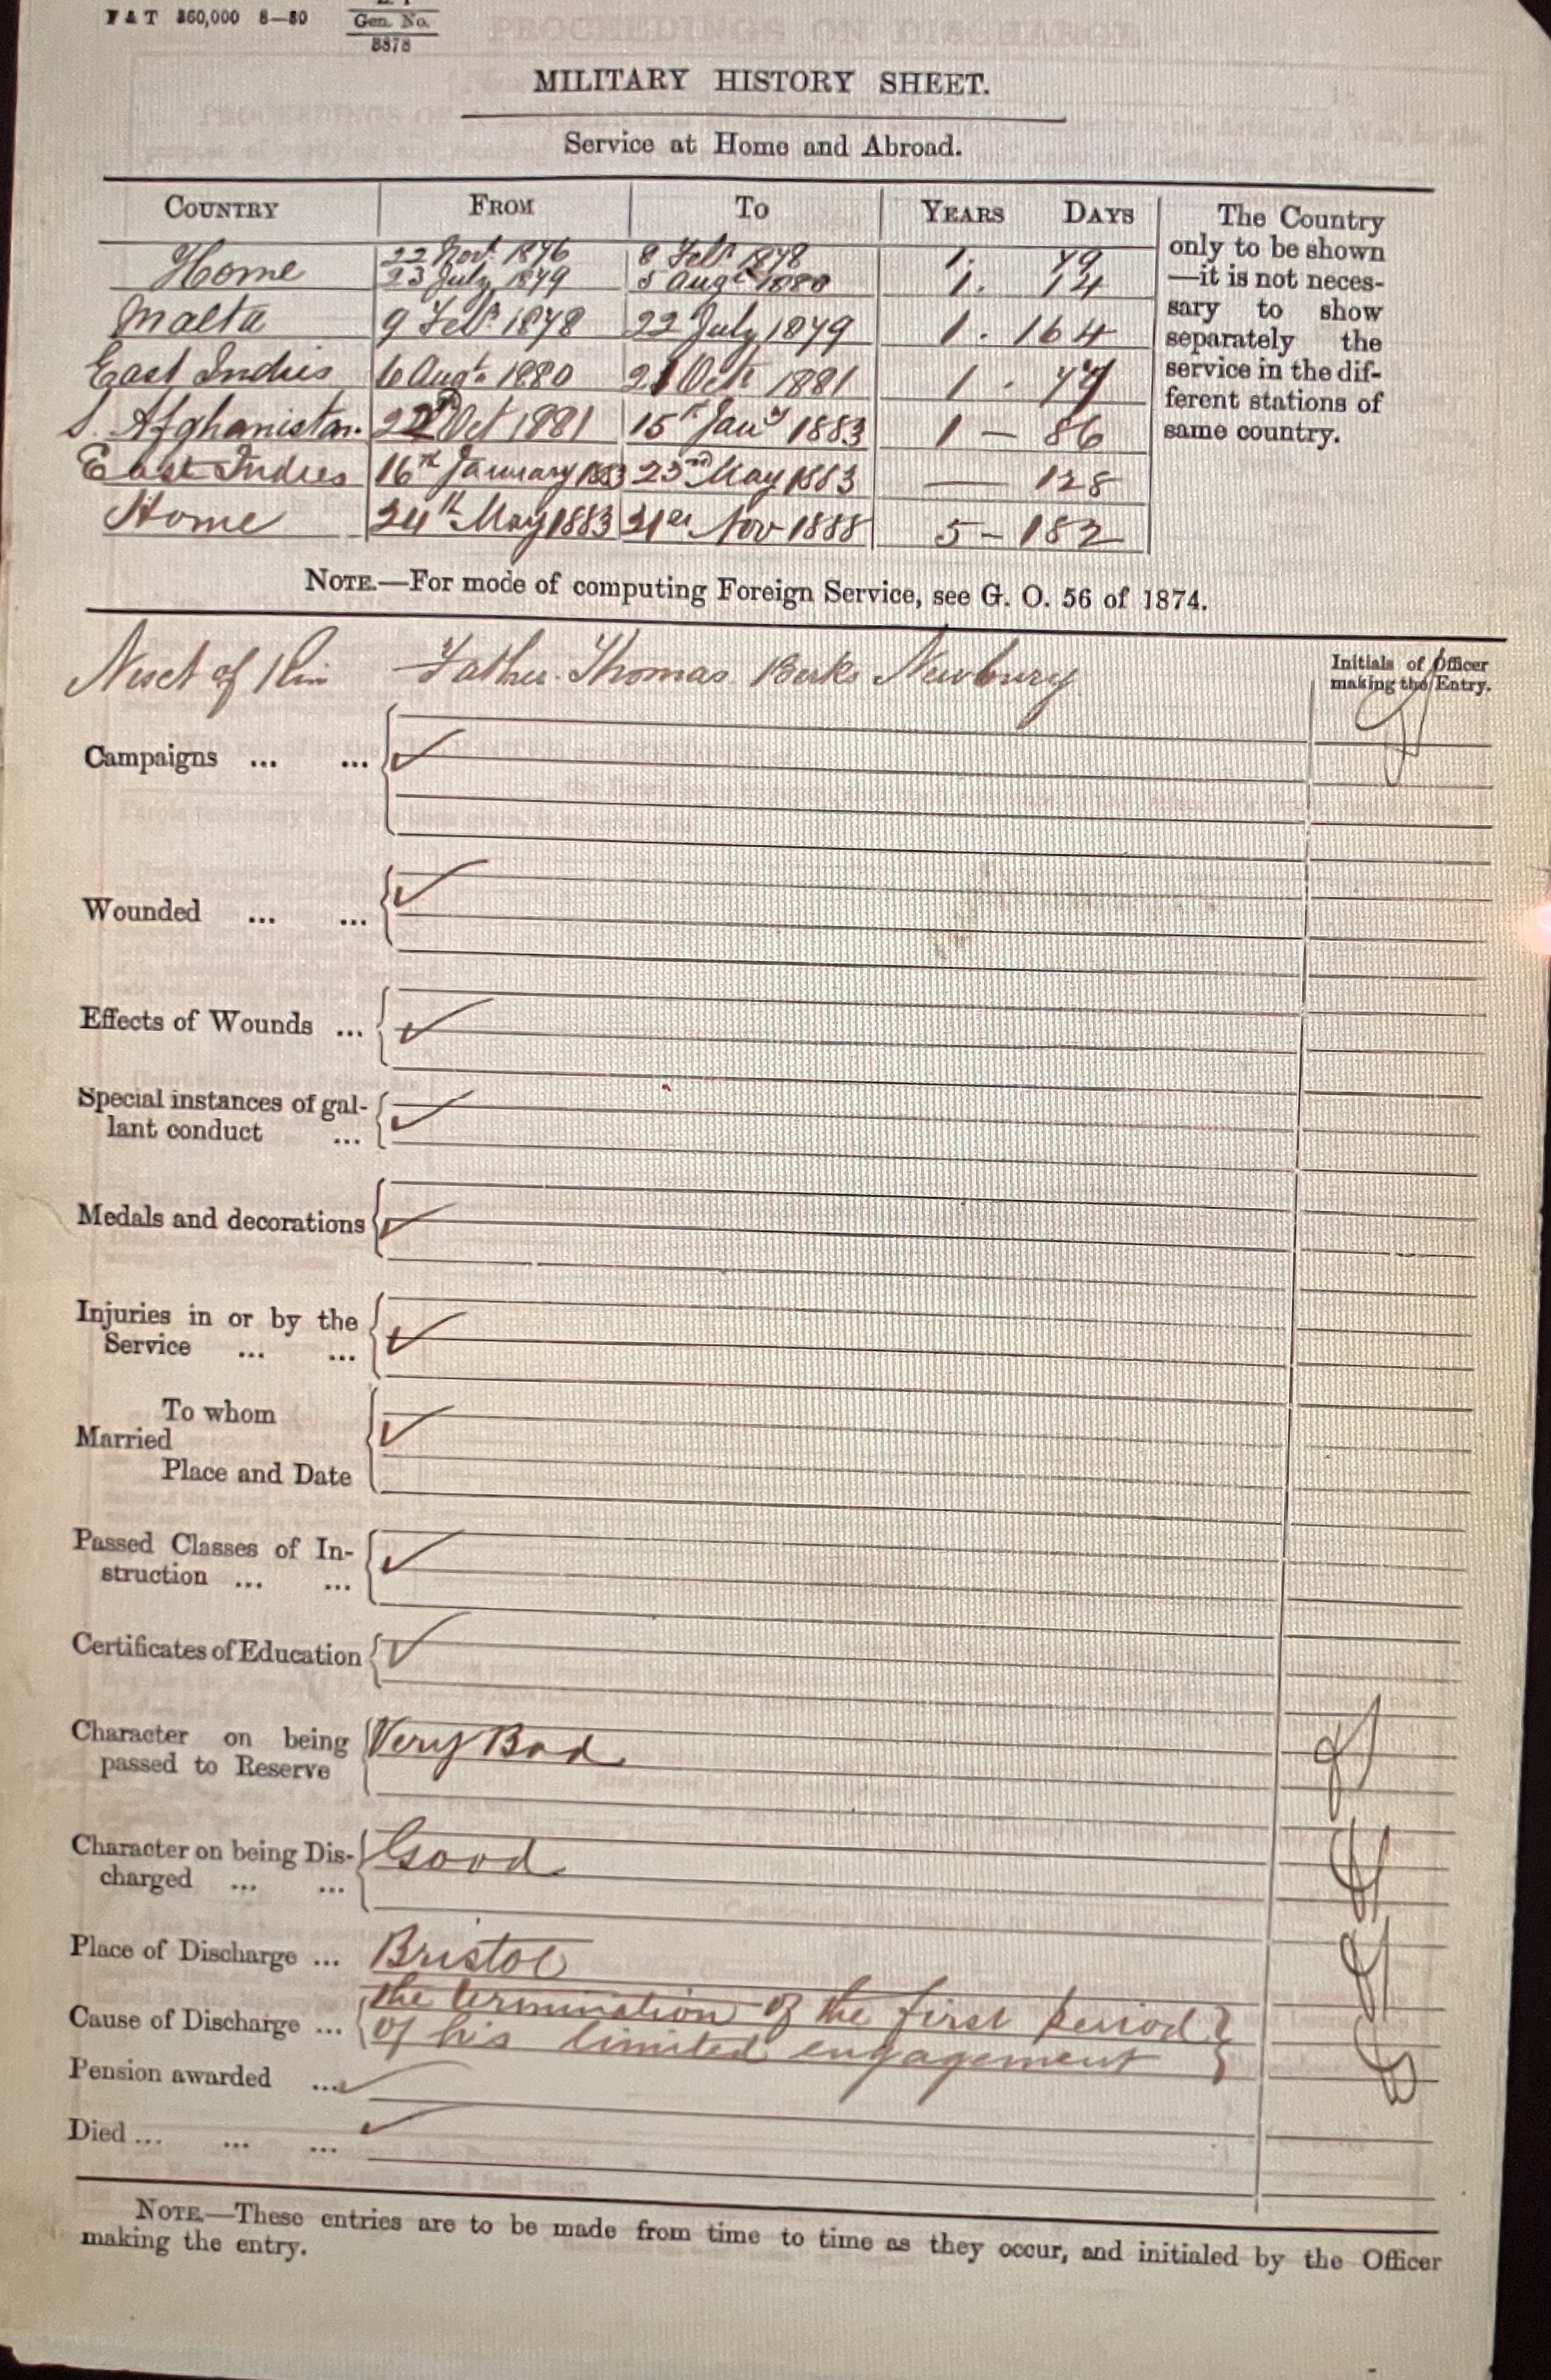 F & T 360,000 8—80
Gen. No.
8878
MILITARY HISTORY SHEET.
Service at Home and Abroad.
COUNTRY FROM TO YEARS DAYS
Home 22 Novr. 1876 8 Feby 1878 1. 79
23 July 1879 5 Augt 1880 1. 14
Malta 9 Feby 1878 22 July 1879 1. 164
East Indies 6 Augt. 1880 21 Oct 1881 1. 77
S. Afghanistan. 22nd Oct 1881 15th Jany 1883 1 — 86
East Indies 16th January 1883 23rd May 1883 — 128
Home 24th May 1883 21st Nov 1888 5 — 182
The Country
only to be shown
—it is not neces-
sary to show
separately the
service in the dif-
ferent stations of
same country.
NOTE.—For mode of computing Foreign Service, see G. O. 56 of 1874.
Next of Kin Father. Thomas Berks Newbury
Initials of Officer
making the Entry.
Campaigns ... ...
Wounded ... ...
Effects of Wounds ...
Special instances of gal-
lant conduct ...
Medals and decorations
Injuries in or by the
Service ... ...
To whom
Married
Place and Date
Passed Classes of In-
struction ... ...
Certificates of Education
Character on being
passed to Reserve
Very Bad
Character on being Dis-
charged ... ...
Good
Place of Discharge ... Bristol
Cause of Discharge ... the termination of the first period
of his limited engagement
Pension awarded ...
Died ... ... ...
NOTE.—These entries are to be made from time to time as they occur, and initialed by the Officer
making the entry.